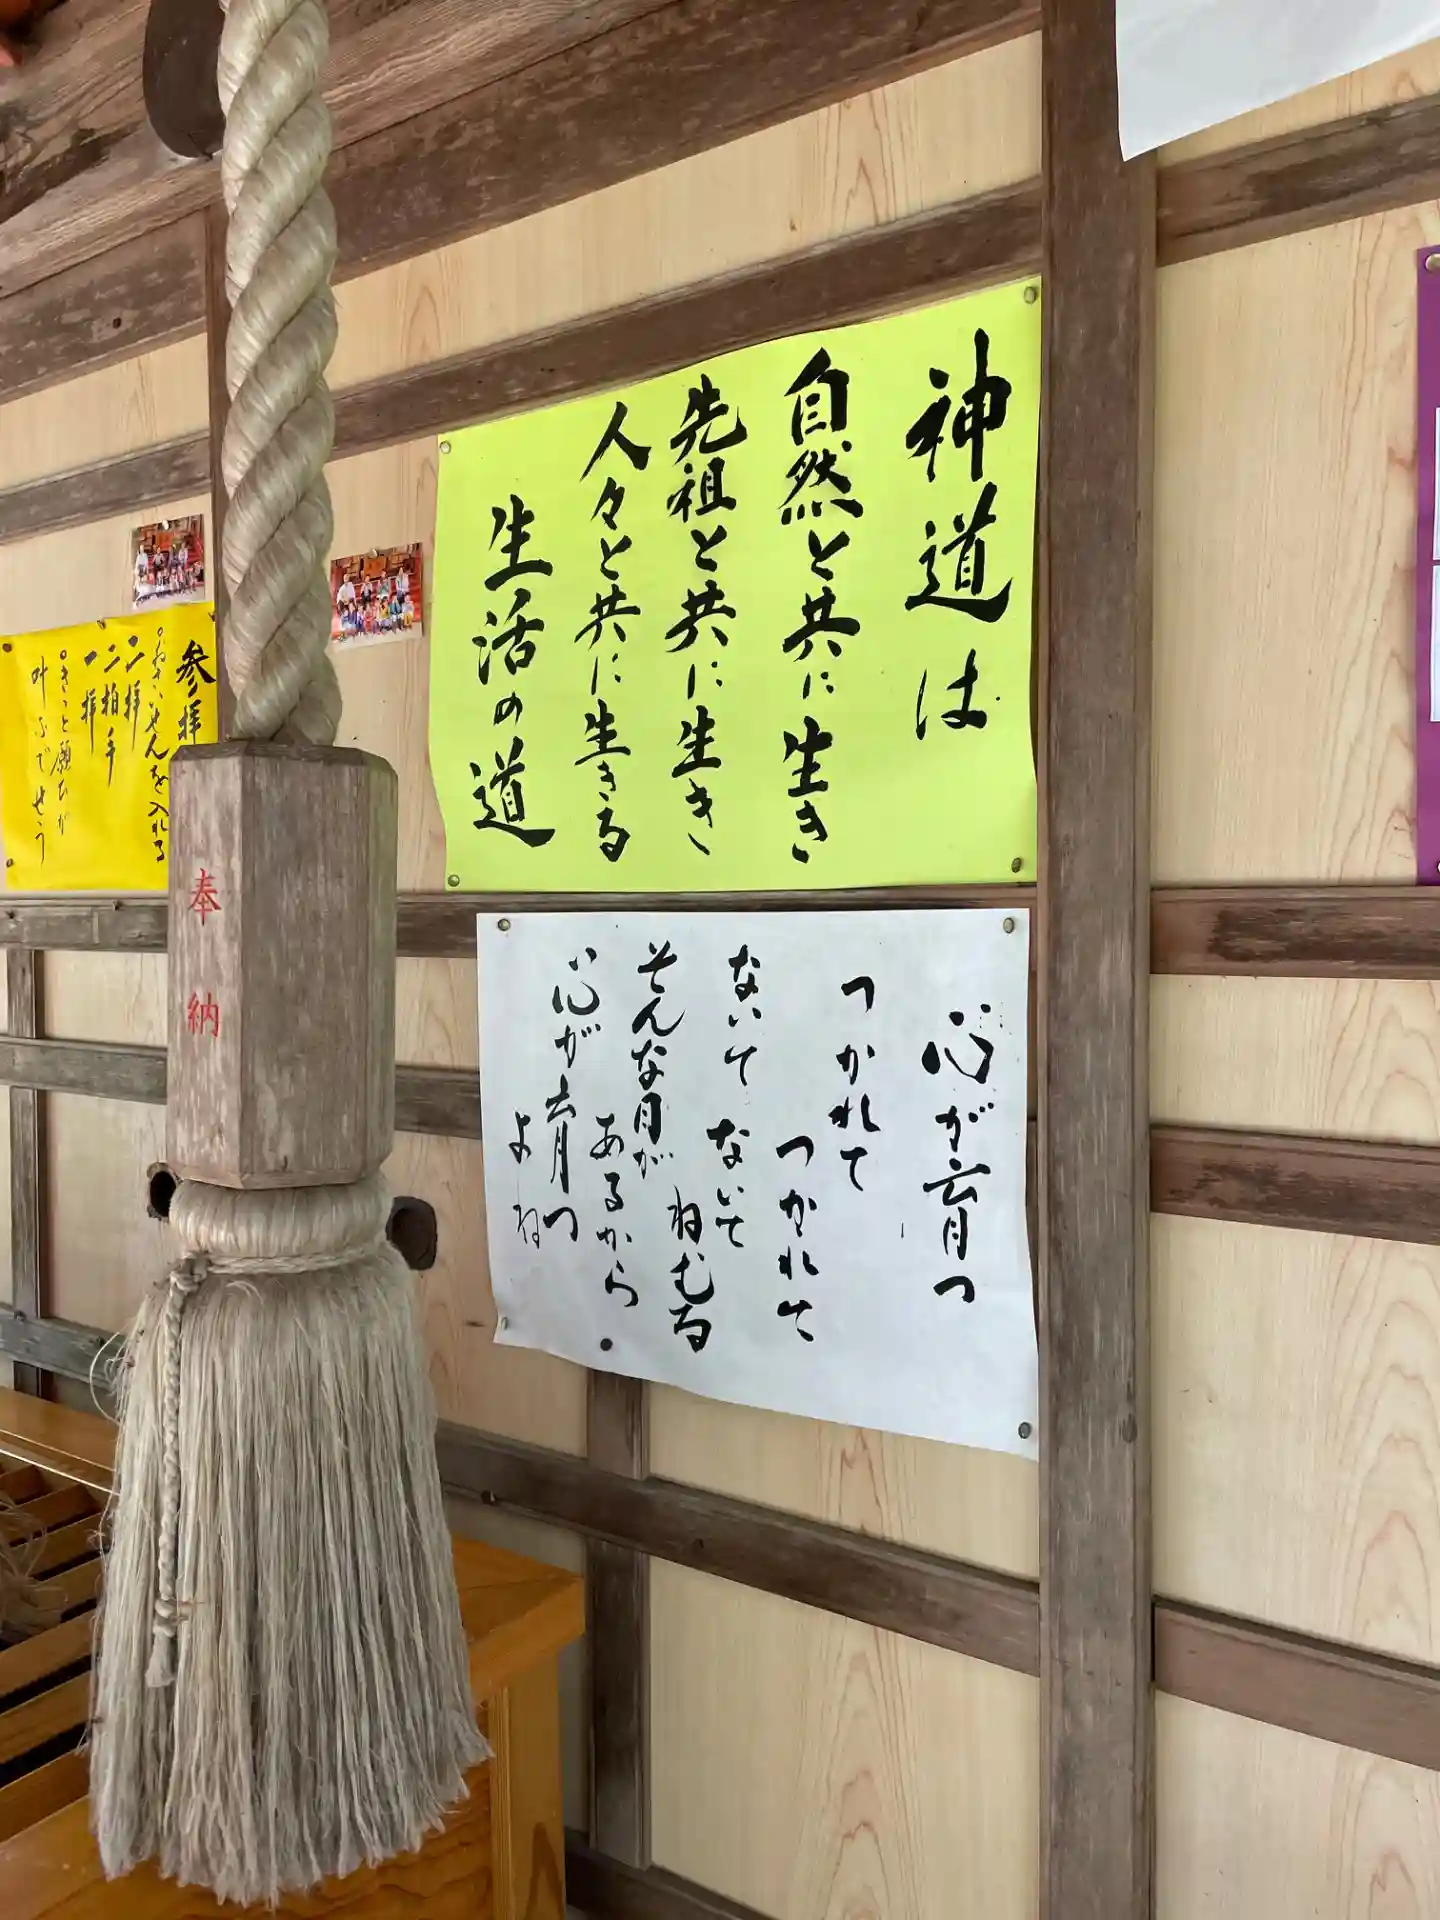 神道は
自然と共に生き
先祖と共に生き
人々と共に生きる
生活の道
心が育つ
つかれて
つかれて
ないて ないて
ねむる
そんな月が
あるから
心が育つ
よね
参拝
°おさいせんを入れる
二拝
二拍手
一拝
°きっと願いが
叶うでせう
奉納